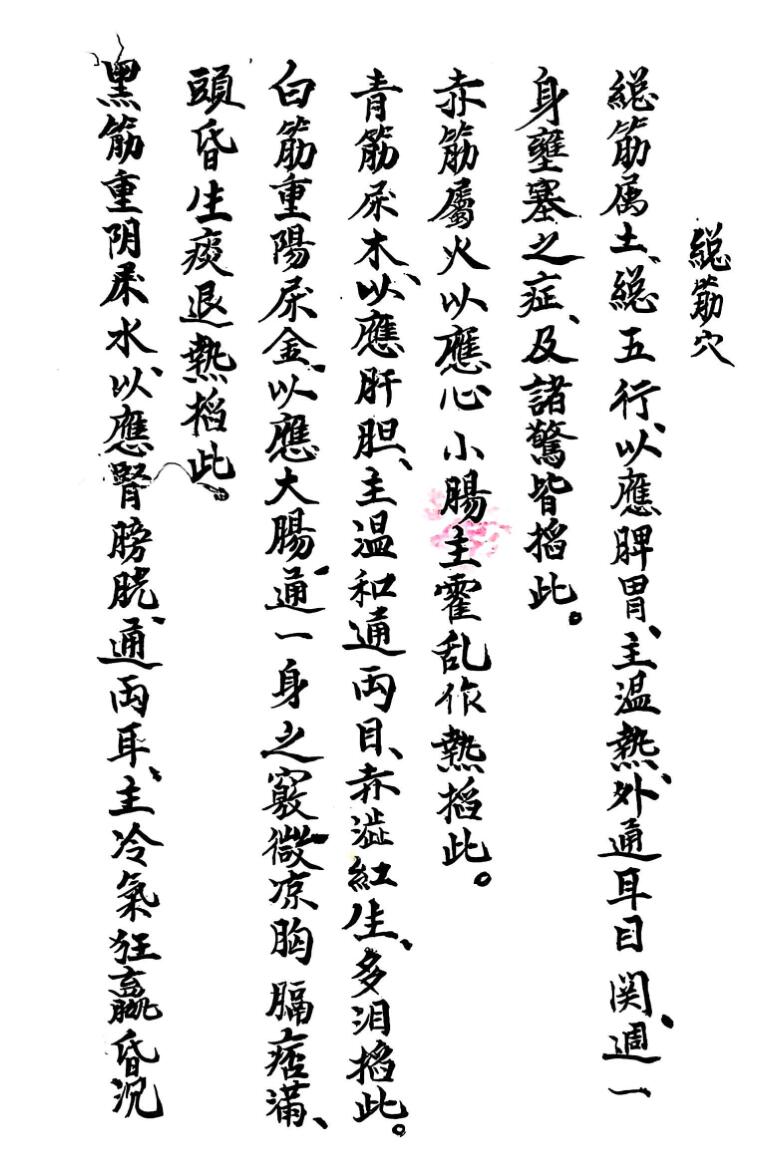 総筋穴
総筋属土、総五行、以應脾胃、主温熱、外通耳目関、週一
身壅塞之症、及諸驚皆掐此。
赤筋屬火以應心小腸主霍乱作熱掐此。
青筋屬木、以應肝胆、主温和通両目、赤澁紅生、多泪掐此。
白筋重陽屬金、以應大腸、通一身之竅微凉胸膈痞滿、
頭昏生痰退熱掐此。
黑筋重阴屬水、以應腎膀胱、通両耳、主冷氣狂羸昏沉